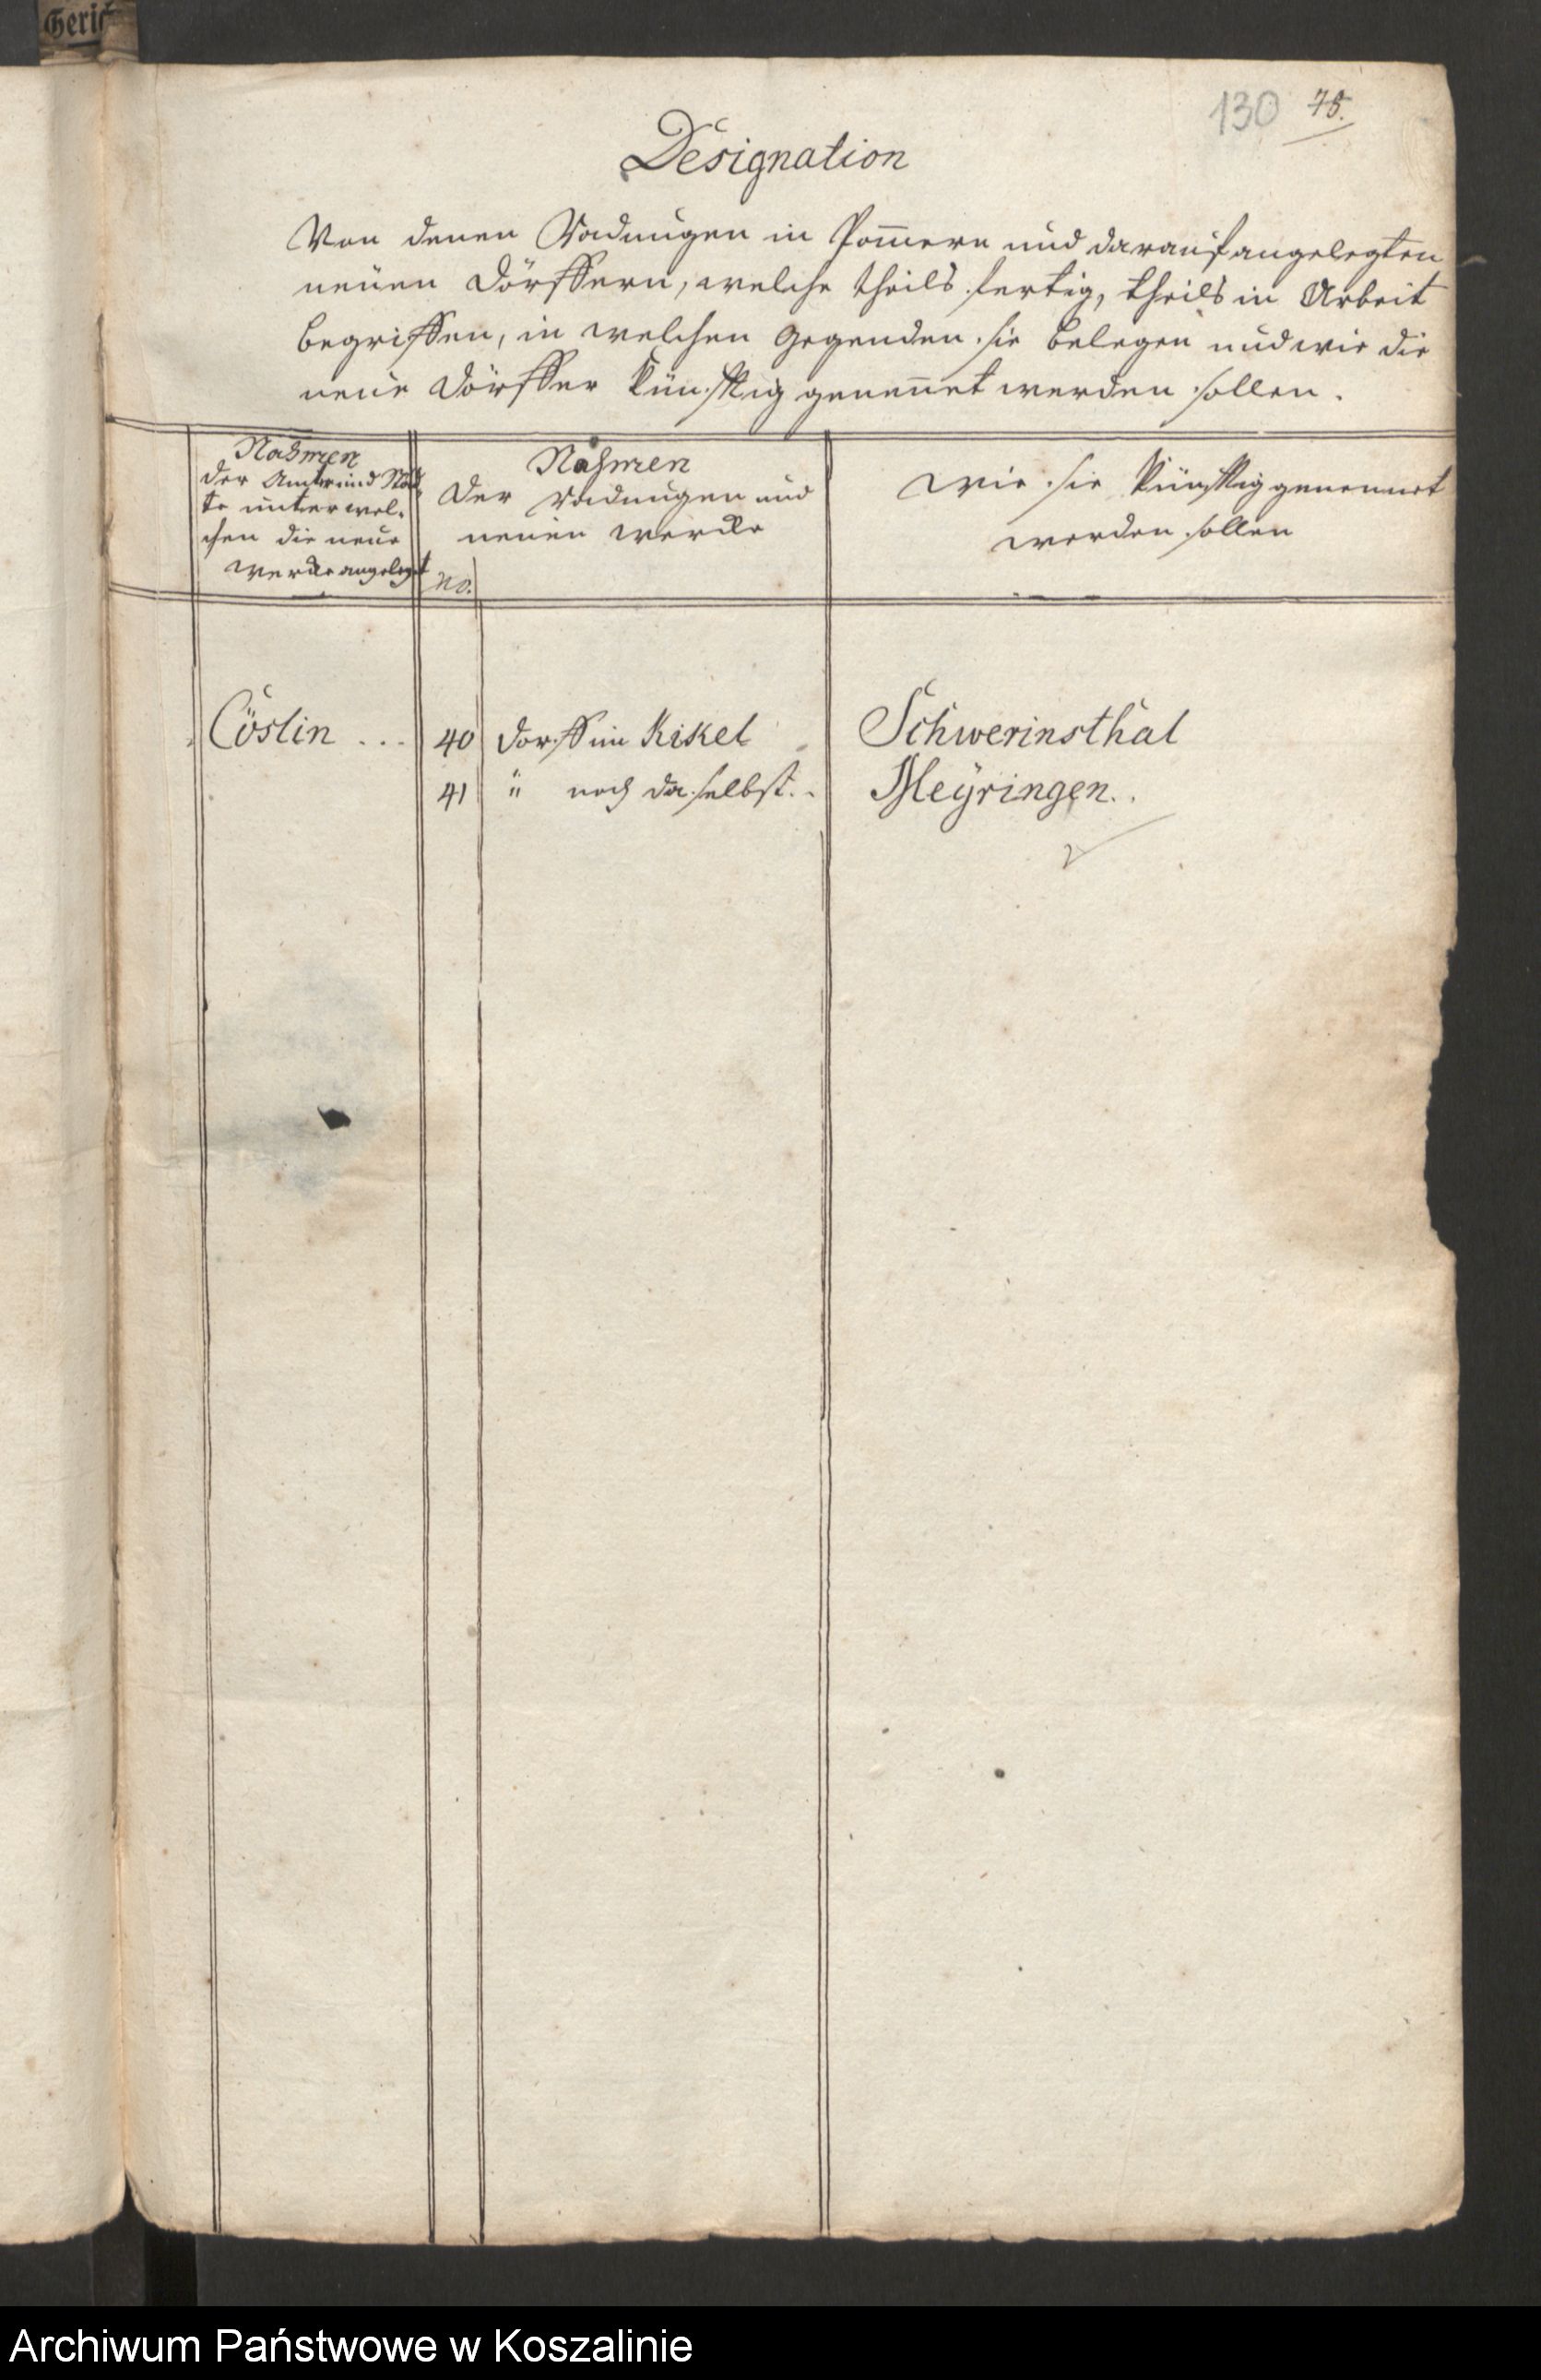 Geri
130 75.
Designation
Von denen Radungen in Pom̅ern und darauf angelegten
neüen Dörffern, welche theils fertig, theils in Arbeit
begriffen, in welchen Gegenden sie belegen und wie die
neüe Dörffer künfftig genen̅et werden sollen.
Nahmen
der Ämter und Städ
te unter wel-
chen die neüe
Wercke angelegt
Nahmen
Der Radungen und
neüen Wercke
No.
Wie sie künfftig genennet
werden sollen
Cöslin ... 40 Dorff im Kikel Schwerinsthal
41 " noch daselbst.. Meÿringen..
Archiwum Państwowe w Koszalinie